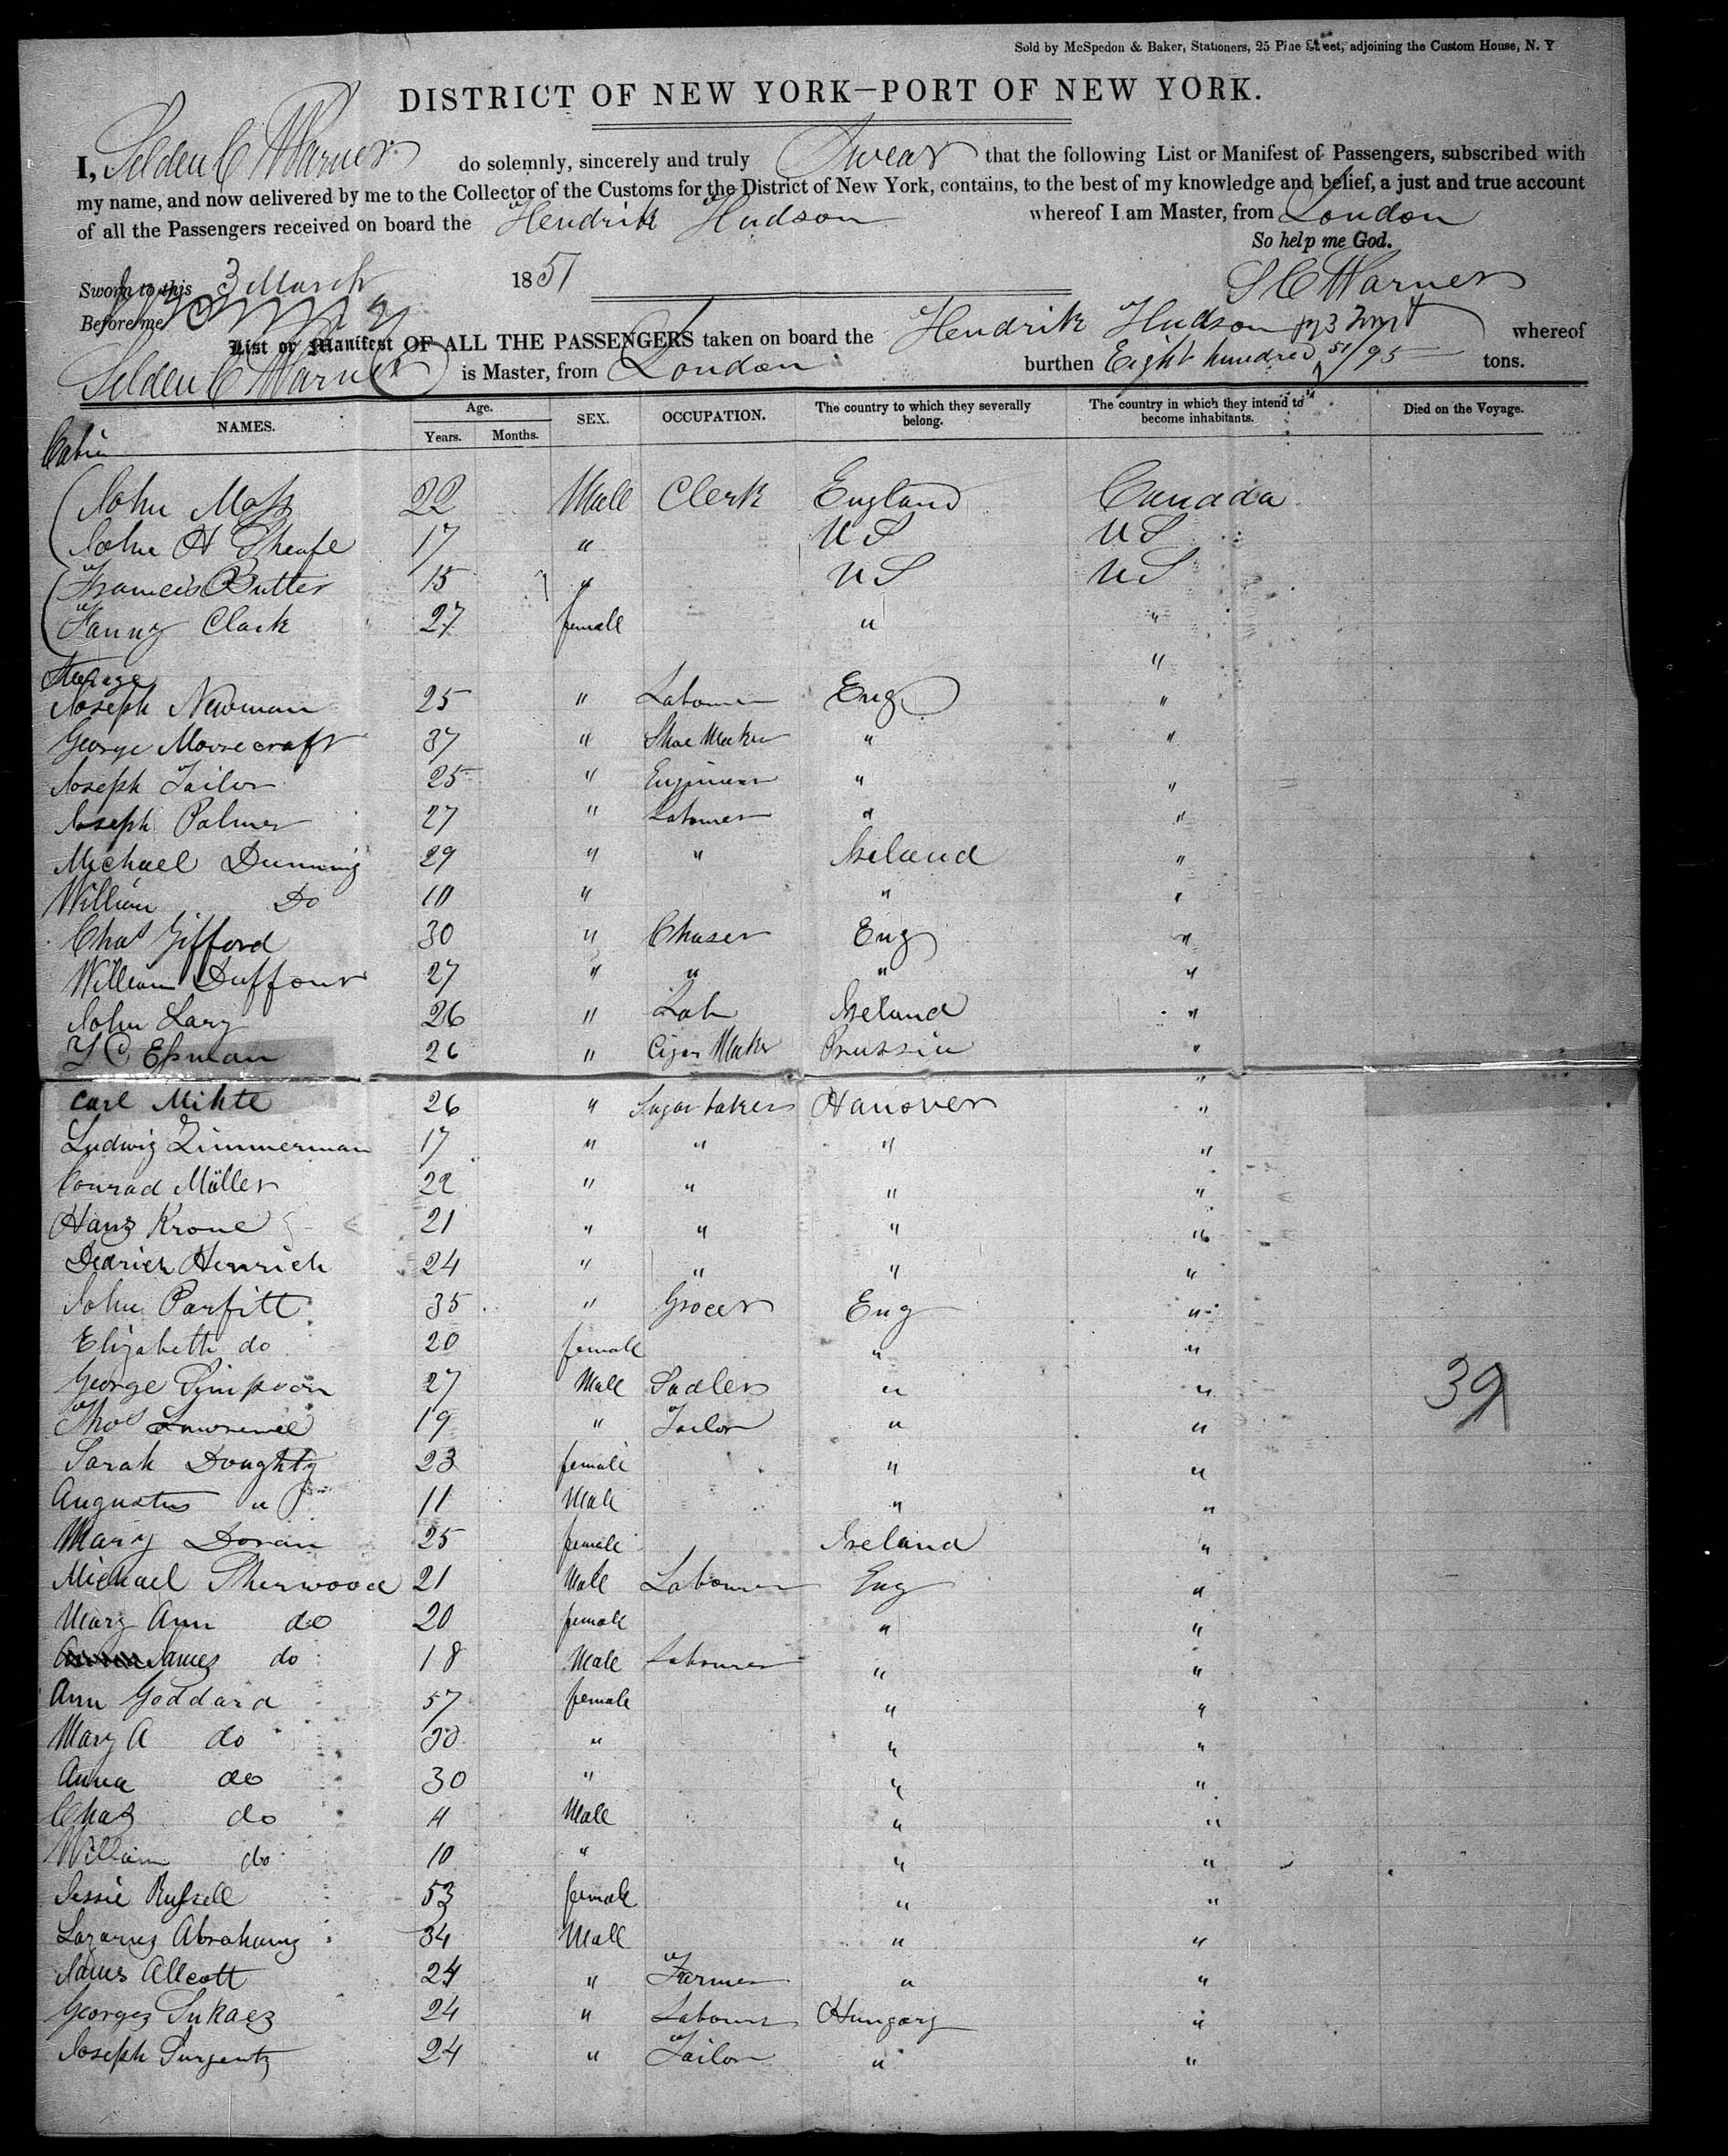 Sold by McSpedon & Baker, Stationers, 25 Pine Street, adjoining the Custom House, N. Y
DISTRICT OF NEW YORK—PORT OF NEW YORK.
I, Selden C Warner do solemnly, sincerely and truly Swear that the following List or Manifest of Passengers, subscribed with
my name, and now delivered by me to the Collector of the Customs for the District of New York, contains, to the best of my knowledge and belief, a just and true account
of all the Passengers received on board the Hendrik Hudson whereof I am Master, from London
So help me God.
Sworn to this 3 March 1851
S C Warner
Before me
List or Manifest OF ALL THE PASSENGERS taken on board the Hendrik Hudson whereof
Selden C Warner is Master, from London burthen Eight hundred 51/95 tons.
NAMES. Age. Years. Months. SEX. OCCUPATION. The country to which they severally belong. The country in which they intend to become inhabitants. Died on the Voyage.
Cabin
John Moss 22 Male Clerk England Canada
John H Sheafe 17 " U S U S
Francis Butter 15 " U S U S
Fanny Clark 27 female " "
Steerage "
Joseph Newman 25 " Labourer Eng "
George Moorecraft 37 " Shoe Maker " "
Joseph Tailor 25 " Engineer " "
Joseph Palmer 27 " Labourer " "
Michael Dunning 29 " " Ireland "
William Do 10 " " "
Chas Gifford 30 " Chaser Eng "
William Duffour 27 " " " "
John Lary 26 " Lab Ireland "
Y C Essman 26 " Cigar Maker Prussia "
"
Carl Mihte 26 " Sugar baker Hanover "
Ludwig Zimmerman 17 " " " "
Conrad Müller 22 " " " "
Hans Krone 21 " " " "
Dedrich Henrich 24 " " " "
John Parfitt 35 " Grocer Eng "
Elizabeth do 20 female " "
George Simpson 27 Male Sadler " "
39
Thos Lawrence 19 " Tailor " "
Sarah Doughty 23 female " "
Augustus " 11 Male " "
Mary Doran 25 female Ireland "
Michael Sherwood 21 Male Labourer Eng "
Mary Ann do 20 female " "
James do 18 Male Labourer " "
Ann Goddard 57 female " "
Mary A do 30 " " "
Anna do 30 " " "
Chas do 11 Male " "
William do 10 " " "
Jessie Russell 53 female " "
Lazarus Abrahams 34 Male " "
James Allcott 24 " Farmer " "
Georges Lukaez 24 " Labourer Hungary "
Joseph Surgentz 24 " Tailor " "